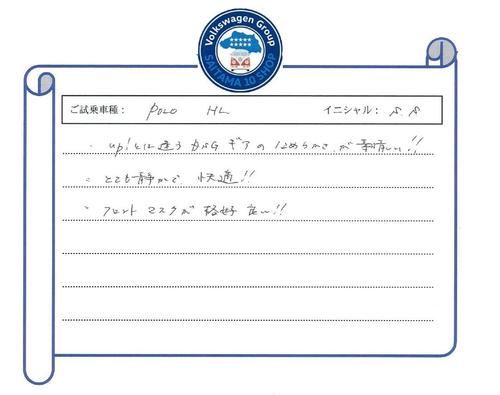 Volkswagen Group
SAITAMA 10 SHOP
ご試乗車種： POLO HL イニシャル： S.S
・ up!とは違う DSGギアの なめらかさが 素晴しい!!
・ とても静かで 快適!!
・ フロントマスクが 格好良い!!